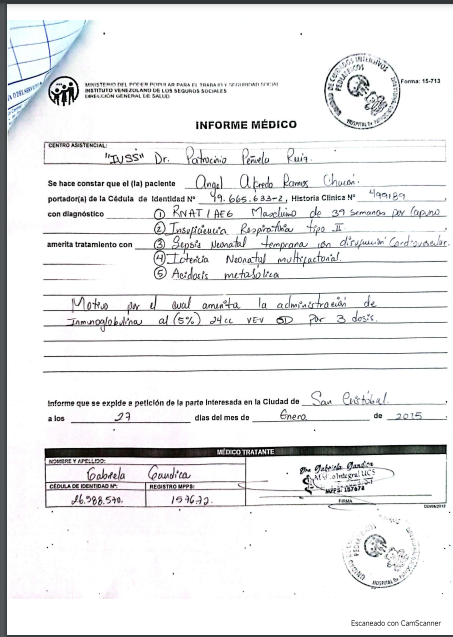 MINISTERIO DEL PODER POPULAR PARA EL TRABAJO Y SEGURIDAD SOCIAL
INSTITUTO VENEZOLANO DE LOS SEGUROS SOCIALES
DIRECCIÓN GENERAL DE SALUD
Forma: 15-713
INFORME MÉDICO
CENTRO ASISTENCIAL:
"IVSS" Dr. Patrocinio Peñuela Ruiz.
Se hace constar que el (la) paciente Angel Alfredo Ramos Chacón.
portador(a) de la Cédula de Identidad N° 49.665.633-2, Historia Clínica N° 499189
con diagnóstico ① RNAT/AEG Masculino de 39 semanas por Capurro
② Insuficiencia Respiratoria tipo II
amerita tratamiento con ③ Sepsis Neonatal temprana con disfunción Cardiovascular.
④ Ictericia Neonatal multifactorial.
⑤ Acidosis metabólica
Motivo por el cual amerita la administración de
Inmunoglobulina al (5%) 24cc VEV OD por 3 dosis.
Informe que se expide a petición de la parte interesada en la Ciudad de San Cristóbal
a los 27 días del mes de Enero de 2025
MÉDICO TRATANTE
NOMBRE Y APELLIDO:
Gabriela Gandica
CÉDULA DE IDENTIDAD N°: REGISTRO MPPS:
26.588.570. 157672.
Dra. Gabriela Gandica
FIRMA
Escaneado con CamScanner